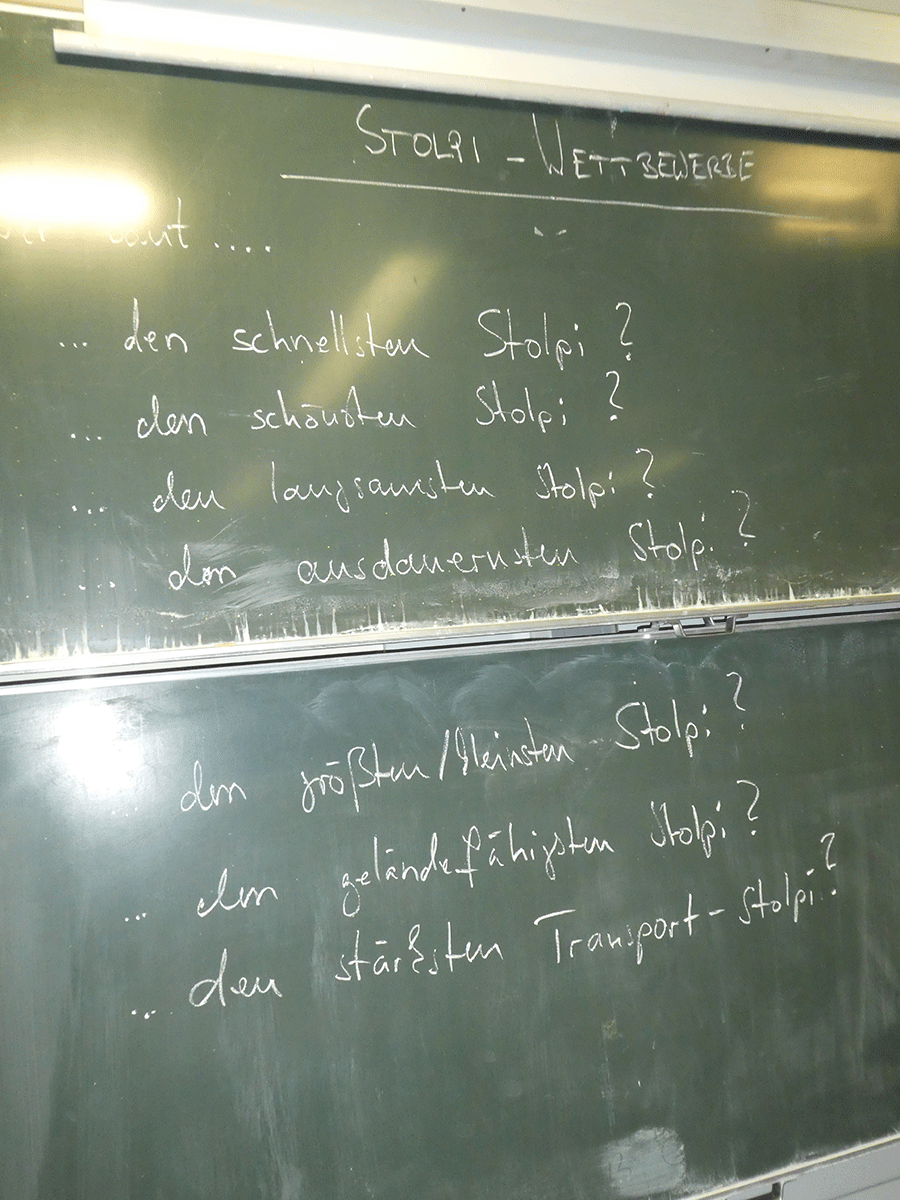 STOLPI - WETTBEWERBE
baut ....
... den schnellsten Stolpi ?
... den schönsten Stolpi ?
... den langsamsten Stolpi ?
... den ausdauernsten Stolpi ?
den größten/kleinsten Stolpi ?
... den geländefähigsten Stolpi ?
... den stärksten Transport-Stolpi ?